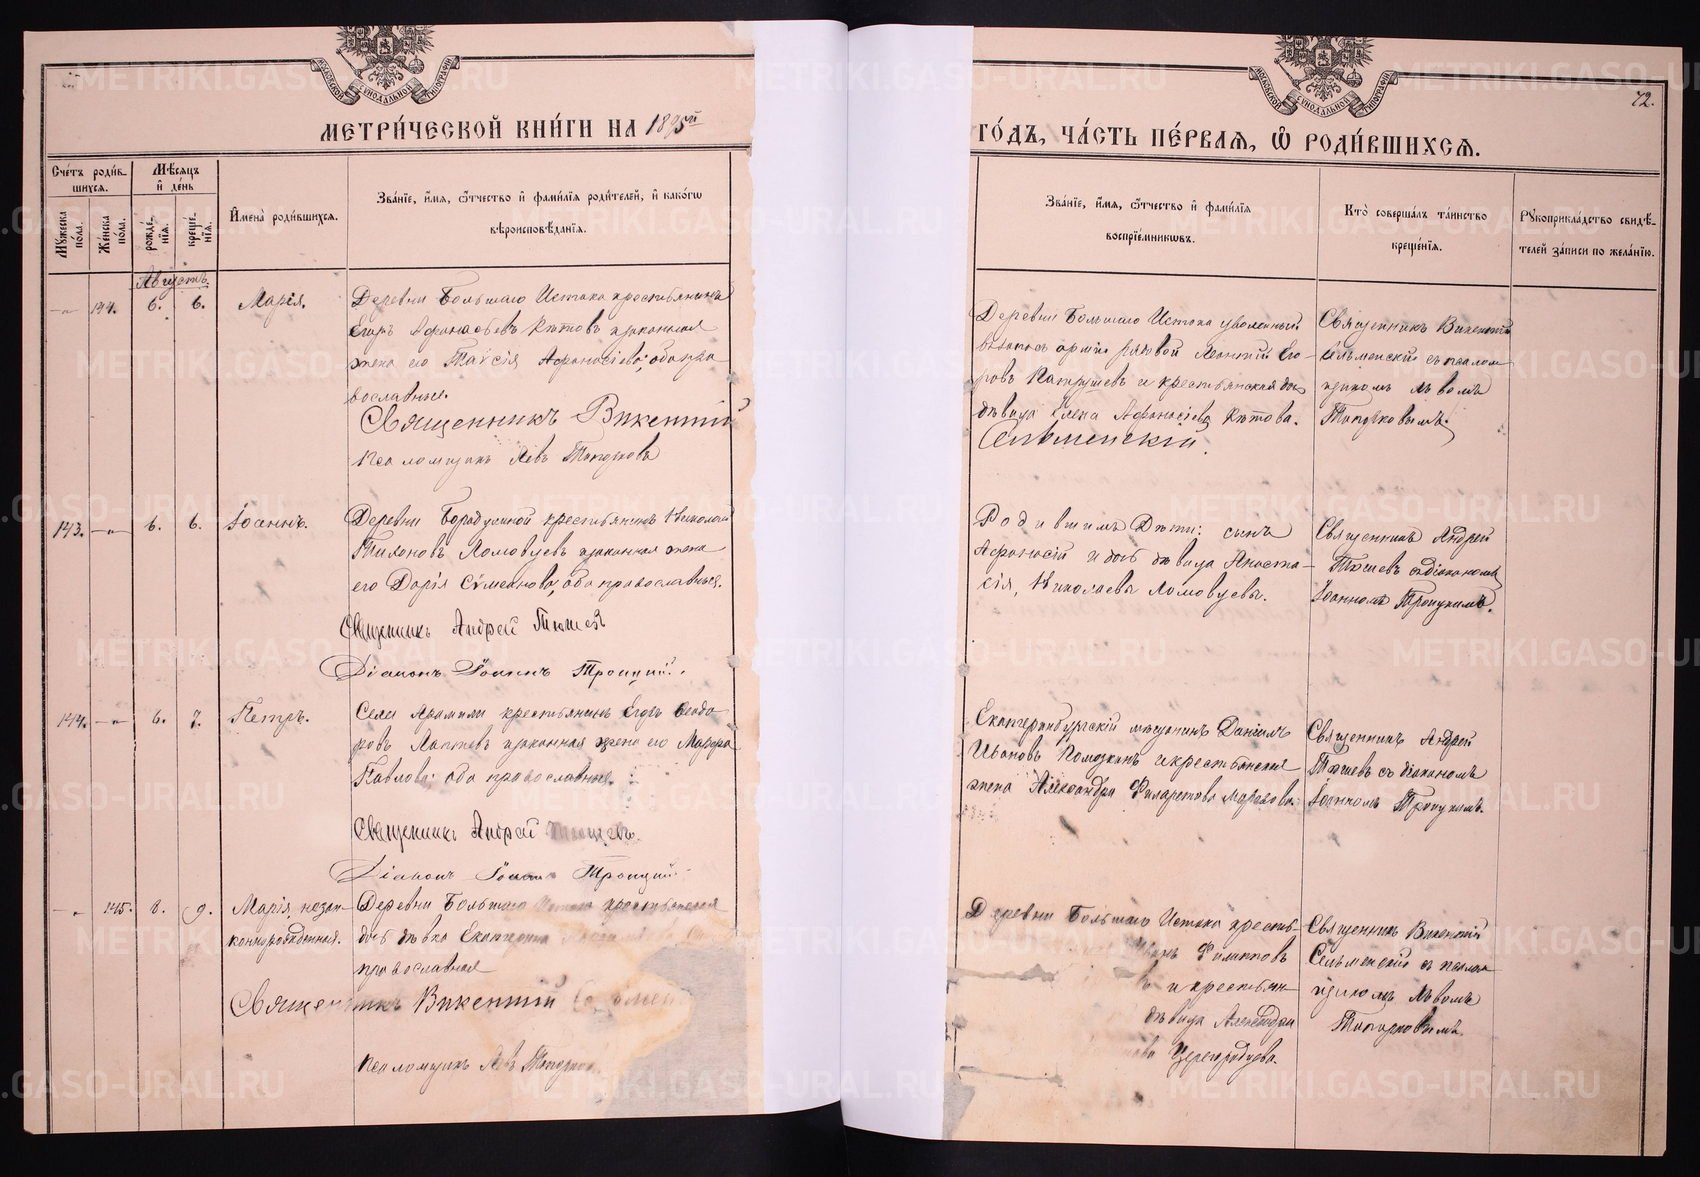 МЕТРИ́ЧЕСКОЙ КНИ́ГИ НА 1895й
ГО́ДЪ, ЧА́СТЬ ПЕ́РВАЯ, Ѡ҆ РОДИ́ВШИХСЯ.
72.
Сче́тъ роди́в-
шихся.
Мꙋ́жеска по́ла.
Же́нска по́ла.
Мѣ́сяцъ
и҆ де́нь
рожде́-
нїя.
креще́-
нїя.
И҆мена̀ роди́вшихся.
Зва́нїе, и҆́мя, ѻ҆́тчество и҆ фами́лїя роди́телей, и҆ како́гѡ
вѣроисповѣ́данїя.
Зва́нїе, и҆́мя, ѻ҆́тчество и҆ фами́лїя
воспрїе́мникѡвъ.
Кто̀ соверша́лъ та́инство
креще́нїя.
Рꙋкоприкла́дство свидѣ́-
телей за́писи по жела́нїю.
Августъ.
6. 6. Марія.
Деревни Большаго Истока крестьянинъ
Егоръ Афонасьевъ Кѣтовъ и законная
жена его Таисія Афонасіева, оба пра
вославные.
Священникъ Викентій
Псаломщикъ Левъ Топорковъ
Деревни Большаго Истока уволенный
рядовой Леонтій Его-
ровъ Патрушевъ и крестьянская дочь
дѣвица Елена Афонасіева Кѣтова.
Сельменскій.
Священникъ Викентій
Сельменскій съ псалом
щикомъ Львомъ
Топорковымъ.
143. —„— 6. 6. Іоаннъ.
Деревни Бородулиной крестьянинъ Николай
Тихоновъ Ломовцевъ и законная жена
его Дарія Сѵмеонова, оба православные.
Священникъ Андрей
Діаконъ Іоаннъ Троицкій.
Родившимъ Дѣти: сынъ
Афонасій и дочь дѣвица Анаста-
сія, Николаевы Ломовцевы.
Священникъ Андрей
съ діакономъ
Іоанномъ Троицкимъ.
144. —„— 6. 7. Петръ.
Села Арамили крестьянинъ Егоръ Ѳеодо
ровъ Лаптевъ и законная жена его Марѳа
Павлова: оба православные.
Священникъ Андрей
Діаконъ Іоаннъ Троицкій.
Екатеринбургскій мѣщанинъ Даніилъ
Ивановъ Помазкинъ и крестьянская
жена Александра Филаретова Морозова.
Священникъ Андрей
съ діакономъ
Іоанномъ Троицкимъ.
—„— 145. 8. 9. Марія, незак-
коннорожденная.
Деревни Большаго Истока крестьянская
дочь дѣвка Екатерина
православная
Священникъ Викентій
Псаломщикъ Левъ Топорков
Деревни Большаго Истока крестья-
Филиппов
и крестьян
дѣвица Александра
Цереградцева.
Священникъ Викентій
Сельменскій съ псалом
щикомъ Львомъ
Топорковымъ.
METRIKI.GASO-URAL.RU